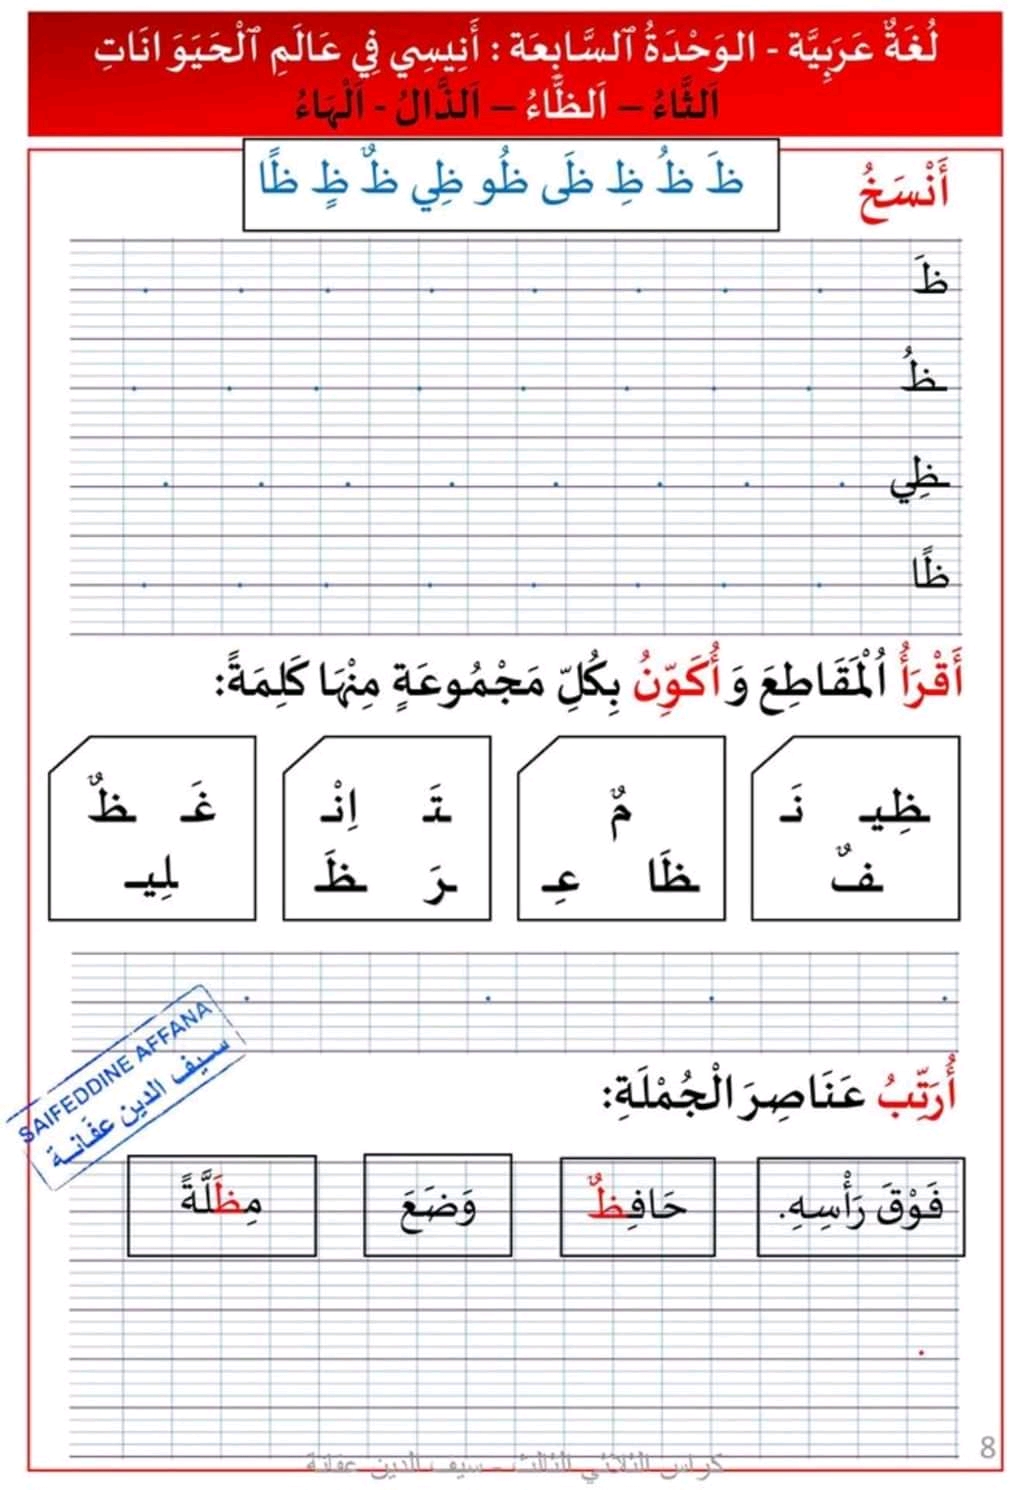 لُغَةٌ عَرَبِيَّة - الوَحْدَةُ ٱلسَّابِعَة : أَنِيسِي فِي عَالَمِ ٱلْحَيَوَانَاتِ
اَلثَّاءُ – اَلظَّاءُ – اَلذَّالُ - اَلْهَاءُ
أَنْسَخُ
ظَ ظُ ظِ ظَى ظُو ظِي ظٌ ظٍ ظًا
ظَ
ـظُ
ـظِي
ظًا
أَقْرَأُ اُلْمَقَاطِعَ وَ أُكَوِّنُ بِكُلِّ مَجْمُوعَةٍ مِنْهَا كَلِمَةً:
ـظِيـ نَـ
ـفٌ
مٌ
ـظَا عِـ
ـتَـ اِنْـ
ـرَ ـظَـ
غَـ ـظٌ
ـلِيـ
SAIFEDDINE AFFANA
سيف الدين عفانة
أُرَتِّبُ عَنَاصِرَ الْجُمْلَةِ:
فَوْقَ رَأْسِهِ.
حَافِظٌ
وَضَعَ
مِظَلَّةً
كراس الثلاثي الثالث - سيف الدين عفانة
8